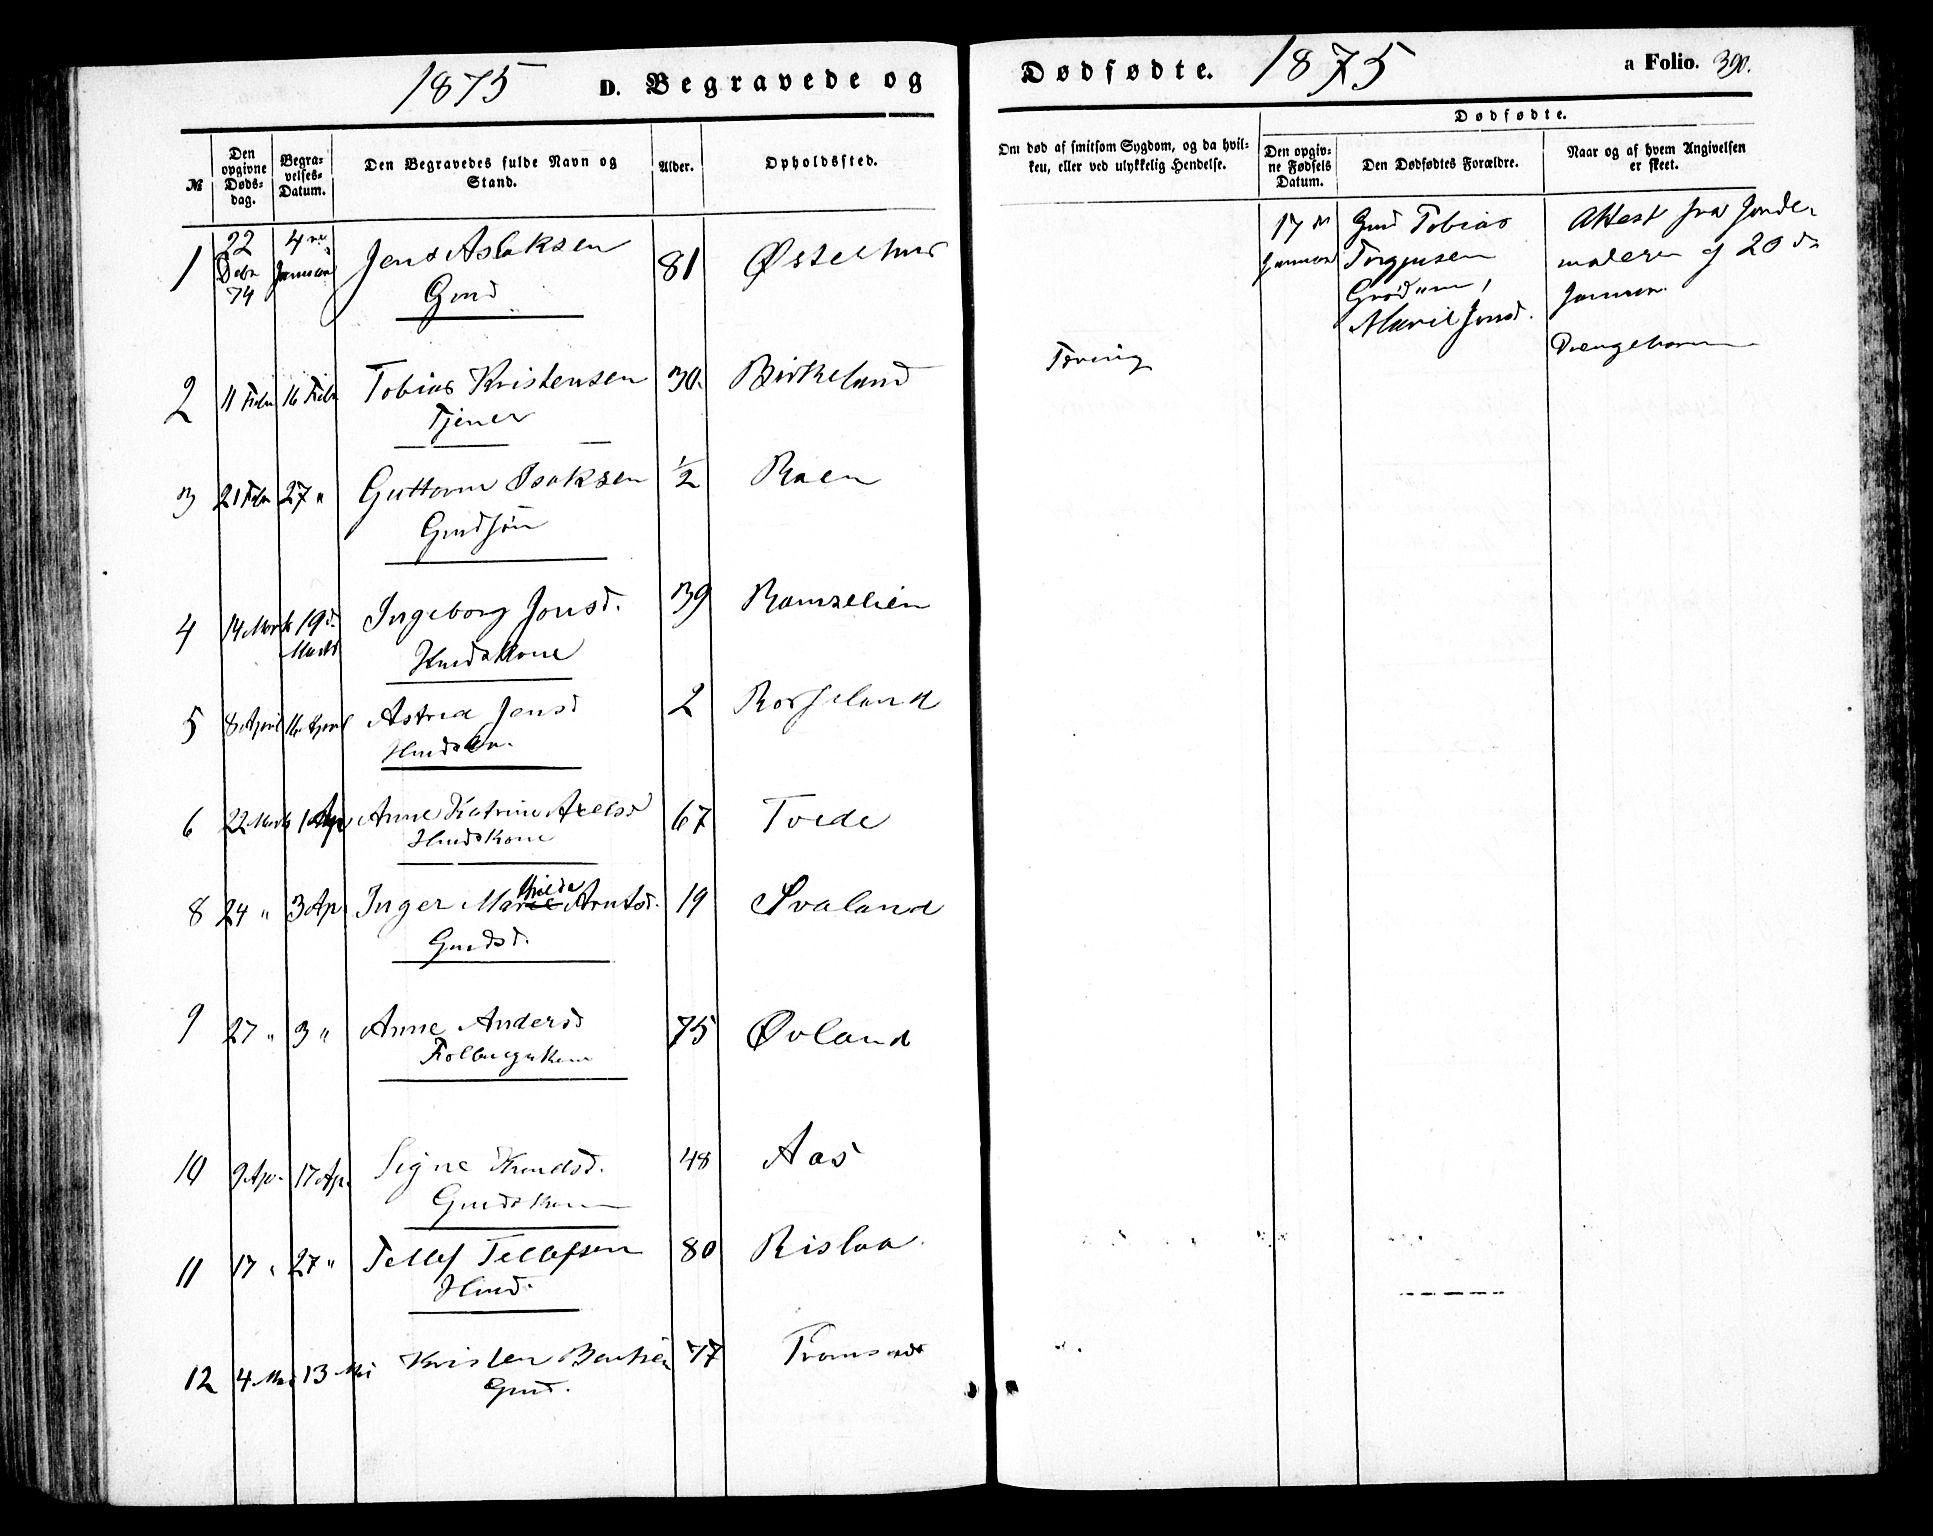 1875 D. Begravede og
Dødfødte. 1875 a Folio. 390.
№
Den opgivne Døds-dag.
Begra-velses-Datum.
Den Begravedes fulde Navn og Stand.
Alder.
Opholdssted.
Om død af smitsom Sygdom, og da hvil-ken, eller ved ulykkelig Hendelse.
Dødfødte.
Den opgiv-ne Fødsels Datum.
Den Dødfødtes Forældre.
Naar og af hvem Angivelsen er skeet.
1 22 Debr 74 4 Januar Jens Aslaksen 81 Østelhus
Gmd
2 11 Febr 16 Febr Tobias Kristensen 30. Birkeland
Tjener
3 21 Febr 27 " Guttorm Isaksen 1/2 Raen
Gmdsøn
4 14 Marts 19 d. Marts Ingeborg Jonsd. 39 Ramselien
Hmdskone
5 8 April 16 April Astrea Jensd 2 Rosseland
6 22 Marts 1 Apr Anne Katrine Axelsd 67 Tvede
Hmdskone
8 24 " 3 Ap. Inger Marie Arntsd. 19 Svaland
Gmdsd.
9 27 " 3 " Anne Andersd 75 Øvland
10 9 Ap. 17 Ap. Signe Knudsd. 48 Aas
Gmdskone
11 17 " 27 " Tellef Tellefsen 80 Rislaa
Hmd.
12 4 Mai 13 Mai Kristen 77
Gmd.
Tæring
17 Januar
Gmd Tobias
Torjusen
Marie Jensd.
Attest fra Jorde-
moderen af 20 d
Januar.
Drengebarn